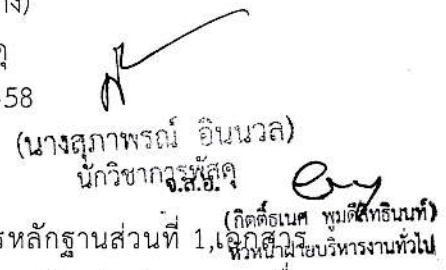 าง)
ดุ
58
(นางสุภาพรณ์ อินนวล)
นักวิชาการพัสดุ
จ.ส.อ.
(กิตติ์ธเนศ พูมดีสิทธินนท์)
หัวหน้าฝ่ายบริหารงานทั่วไป
รหลักฐานส่วนที่ 1,เอกสาร